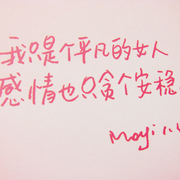 我只是个平凡的女人
感情也只贪个安稳